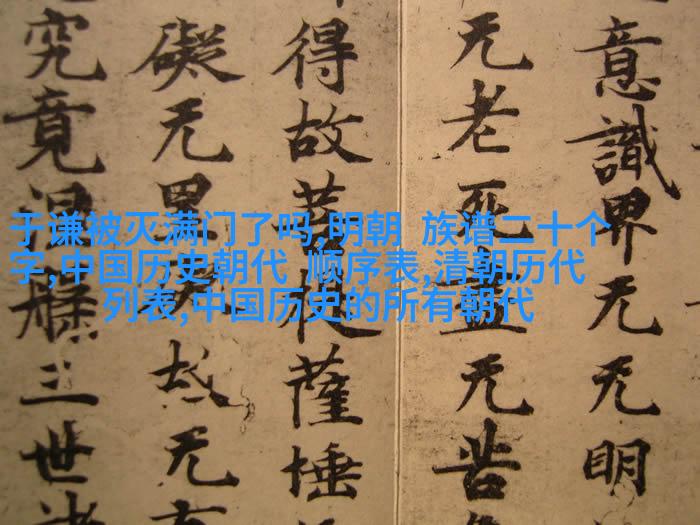 于谦被灭满门了吗,明朝 族谱二十个
字,中国历史朝代 顺序表,清朝历代
列表,中国历史的所有朝代
意識界无无明
无老死盡无苦
得故菩提薩埵
礙无罣故无有
究竟涅槃三世諸